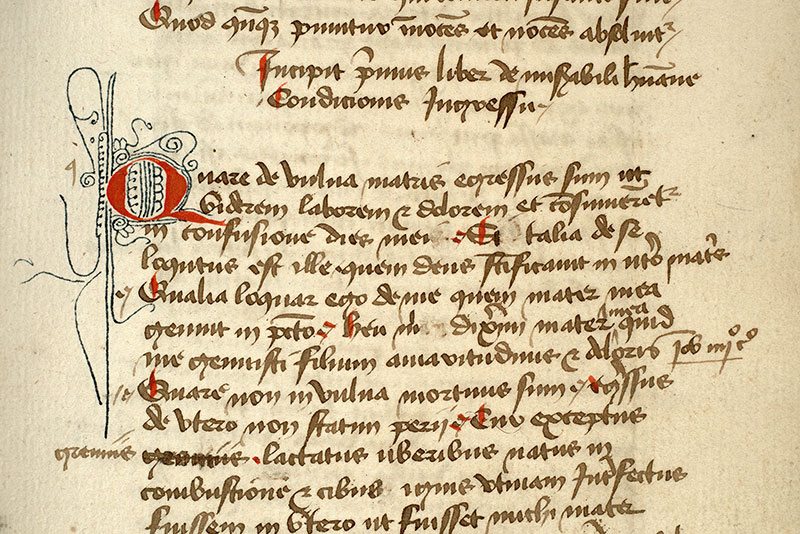 Quod qu̅q̅ʒ puniturᵒ i̅noce̅s et noce̅s absoluitᵉ
Incipit p̅mus liber de mis̅abili hu̅ane
Condicionis Ingressu
Quare de vulua matris egressus sum ut
viderem laborem ⁊ dolorem et co̅sumerẽtᵉ
in confusione dies mei Et talia de se
loqutus est ille quem deus s̅c̅ificauit in ut̅o mat̅s
Qualia loquar ego de me quem mater mea
genuit in pc̅c̅to heu m̅ dix̅im mater mea quid
me genuisti filium amaritudinis ⁊ doloris Job iijᵒ cᵒ
Quare non in vulua mortuus sum eg̅ssus
de vtero non statim perij Cur exceptus
gremiis lactatus uberibus natus in
combustione̅ ⁊ cibus ignis vtinam int̅fectus
fuissem in vtero ut fuisset michi mater